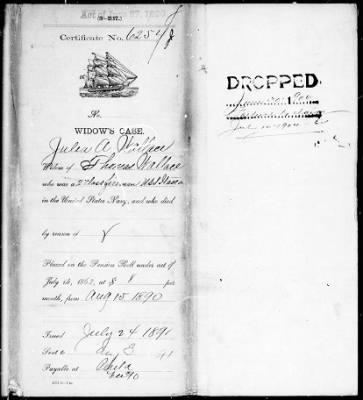 Act of June 27, 1890
Certificate No. 6254
No.
WIDOW'S CASE.
Julia A Wallace
Widow of Thomas Wallace
who was a 2 class fireman U.S.S.
in the United States Navy, and who died
by reason of
Placed in the Pension Roll under act of
July 14, 1862, at $ 8 per
month, from Aug 15 1890
Issued July 24 1891
Sent to
Payable at Phila
DROPPED
1904